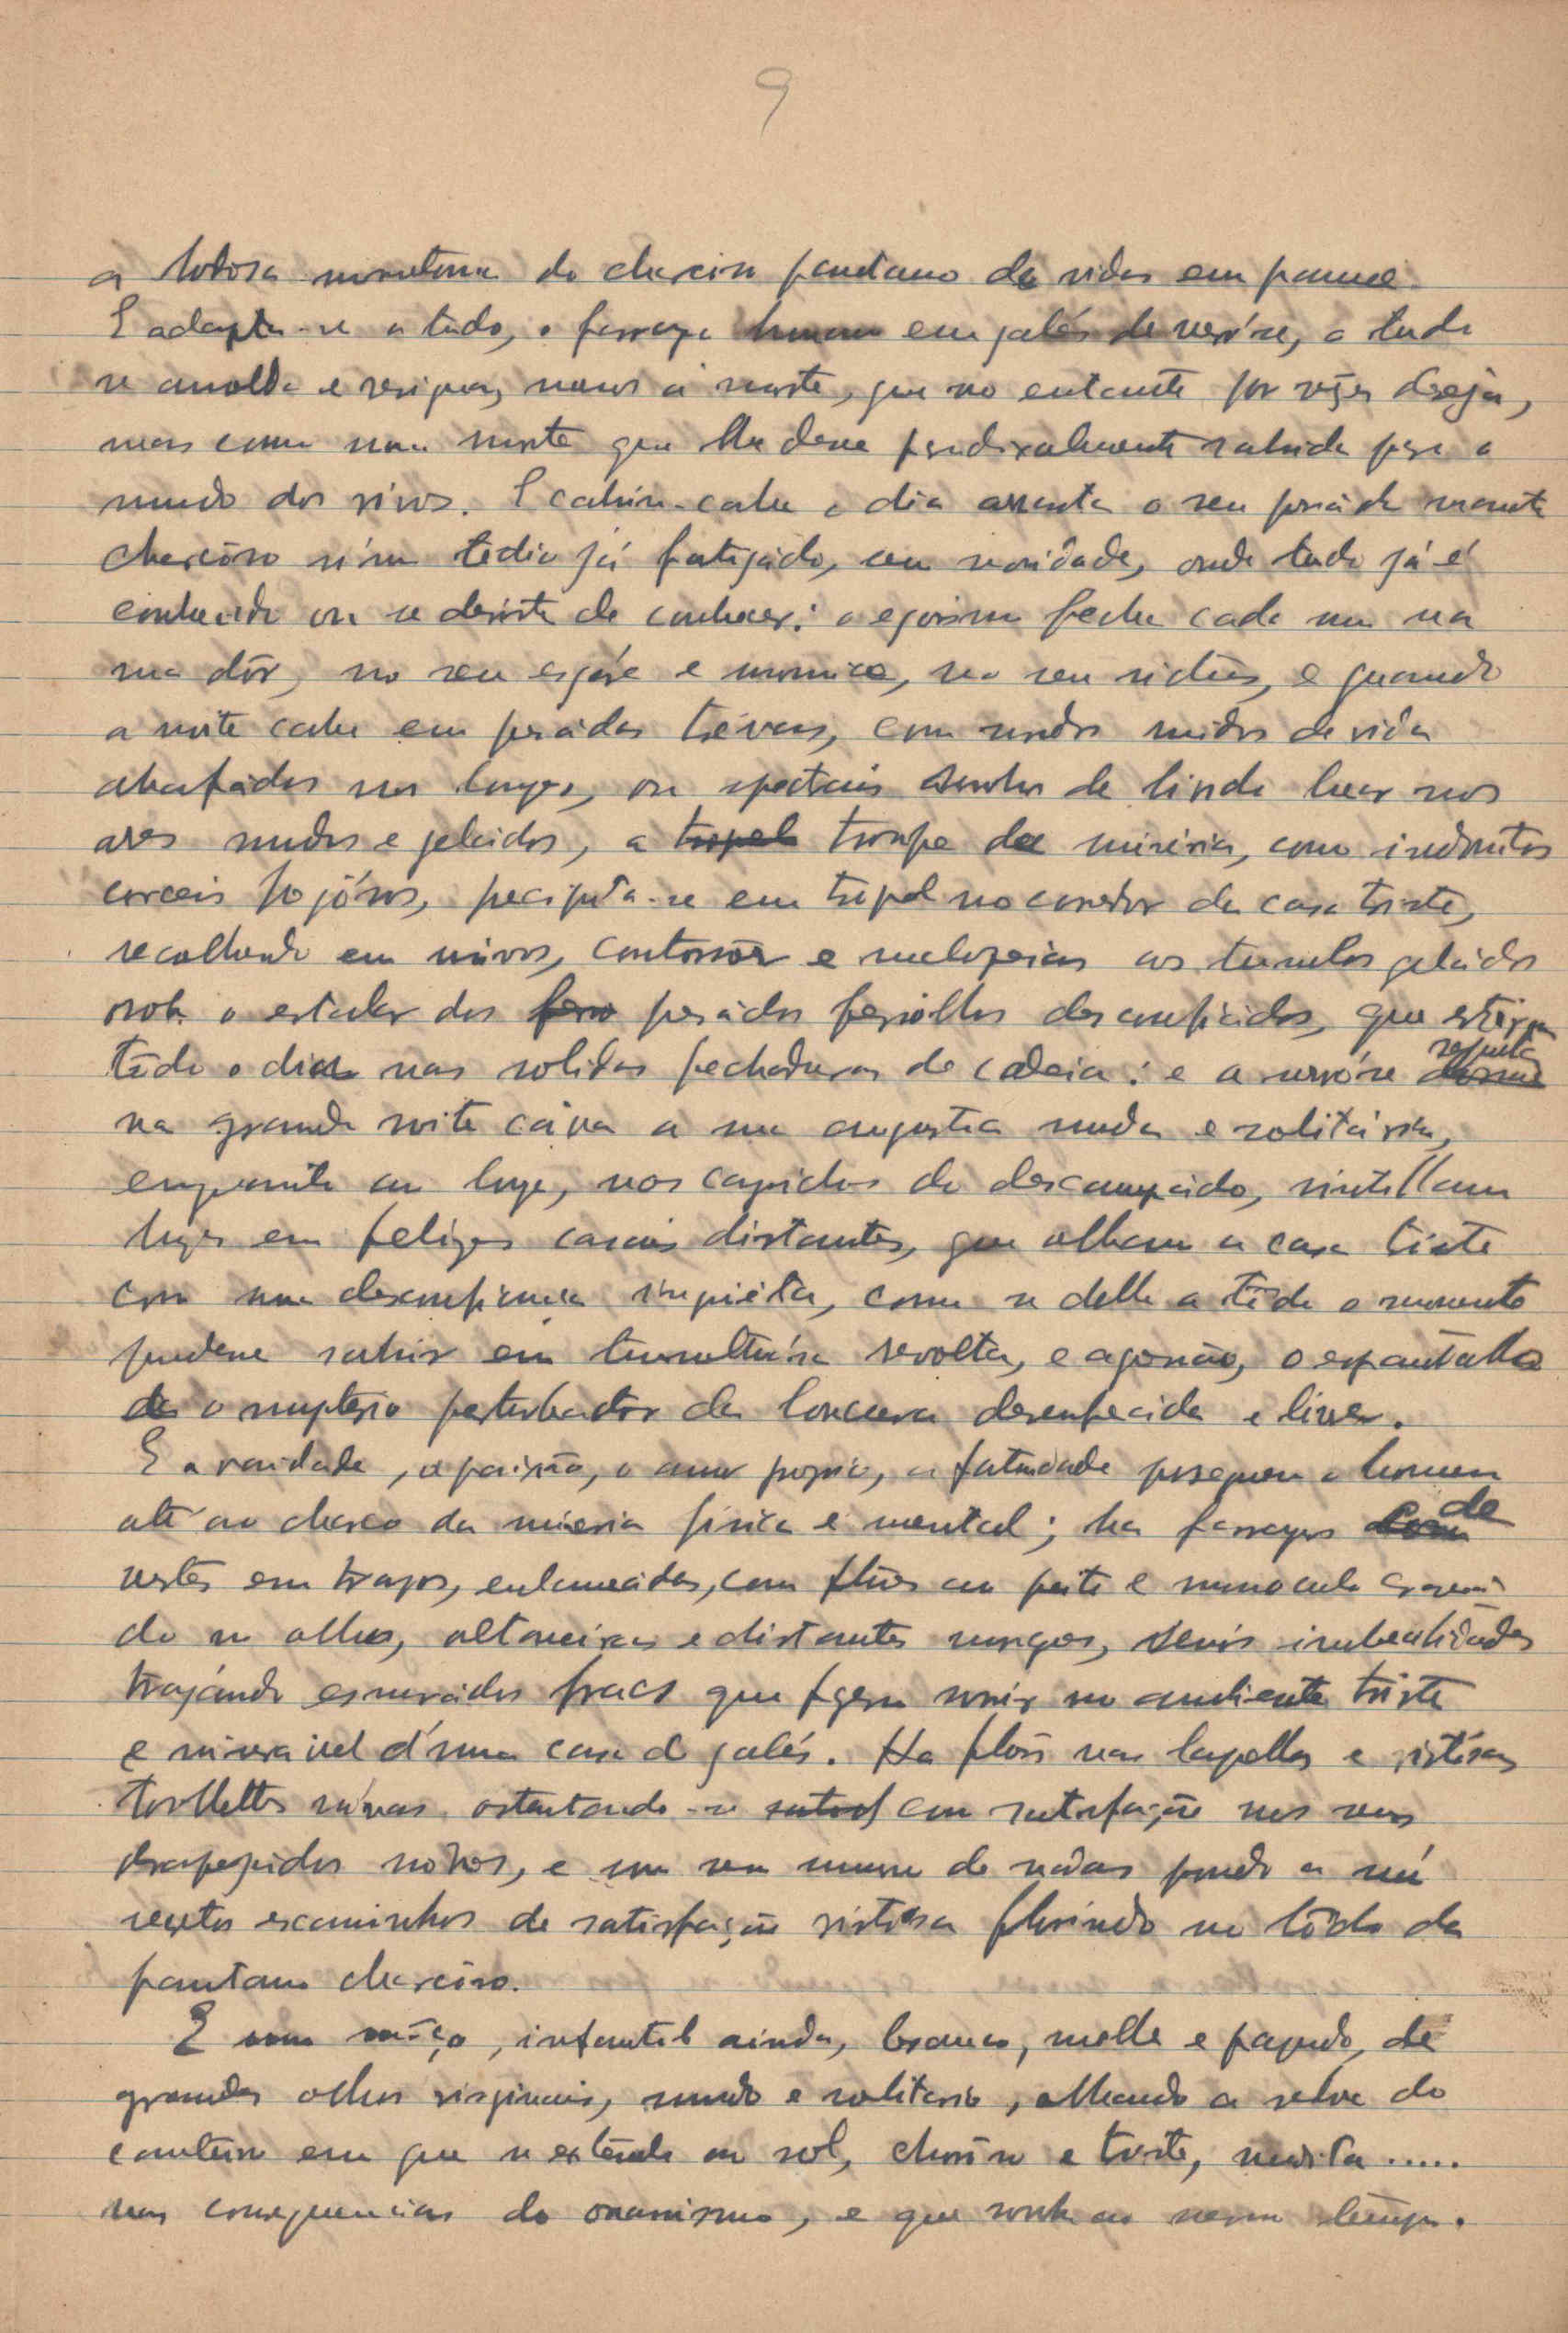 9
a lodosa monotonia do charcoso pantano de vidas em panne.
E adapta-se a tudo, o farrapo humano em galés de nevróse, a tudo
se amolda e resigna, menos á morte, que no entanto por vezes deseja,
mas como uma morte que lhe desse paradoxalmente sahida para o
mundo dos vivos. E cahin-caha o dia arrasta o seu pesádo manto
charcôso n'um tedio já fatigádo, sem novidade, onde tudo já é
conhecido ou se desiste de conhecer: o egoismo fecha cada um na
sua dôr, no seu esgár e momice, no seu e quando
a noite cahe em pesádas trévas, com surdos ruidos de vida
abafádos no longe, ou spectrais sonhos de lindo luar nos
ares mudos e geládos, a tropel troupe da miseria, como indomitos
corceis fogósos, precipita-se em tropel no corredor da casa triste,
recolhendo em uivos, contorsões e melopeias aos tumulos geládos
sob o estalar dos ferro pesádos ferrolhos desconfiádos, que
tôdo o dia nas solidas fechaduras de cadeia: e a nevróse sepulta
na grande noite cáva a sua angustia muda e solitária,
emquanto ao longe, nos do descampádo, sintillam
luzes em felizes casais distantes, que olham a casa triste
com uma desconfiança inquiéta, como se della a tôdo o momento
pudesse sahir em tumultuósa revolta, e agressão, o espantalho
do o mysterio perturbador da loucura desenfreada e livre.
E a vaidade, a paixão, o amor proprio, a fatuidade perseguem o homem
até ao charco da miseria fisica e mental; ha farrapos com de
vestes em trapos, enlameádas, com flôres ao peito e monoculo
do no olho, altaneiras e distantes senis imbecilidades
trajándo esmerádos fracs que fazem sorrir no ambiente triste
e miseravel d'uma casa de galés. Ha flôres nas lapellas e vistósas
toillettes nóvas ostentando-se satisf com satisfação nos seus
nóvos, e um sem numero de nadas pondo a nú
secretos escaninhos de satisfação vistosa florindo no lôdo do
pantano charcôso.
E um môço, infantil ainda, branco, molle e papudo, de
grandes olhos virginais, mudo e solitario, olhando a relva do
canteiro em que se extende ao sol, chorôso e triste, medita.....
nas consequencias do onanismo, e que sonha ao mesmo tempo.